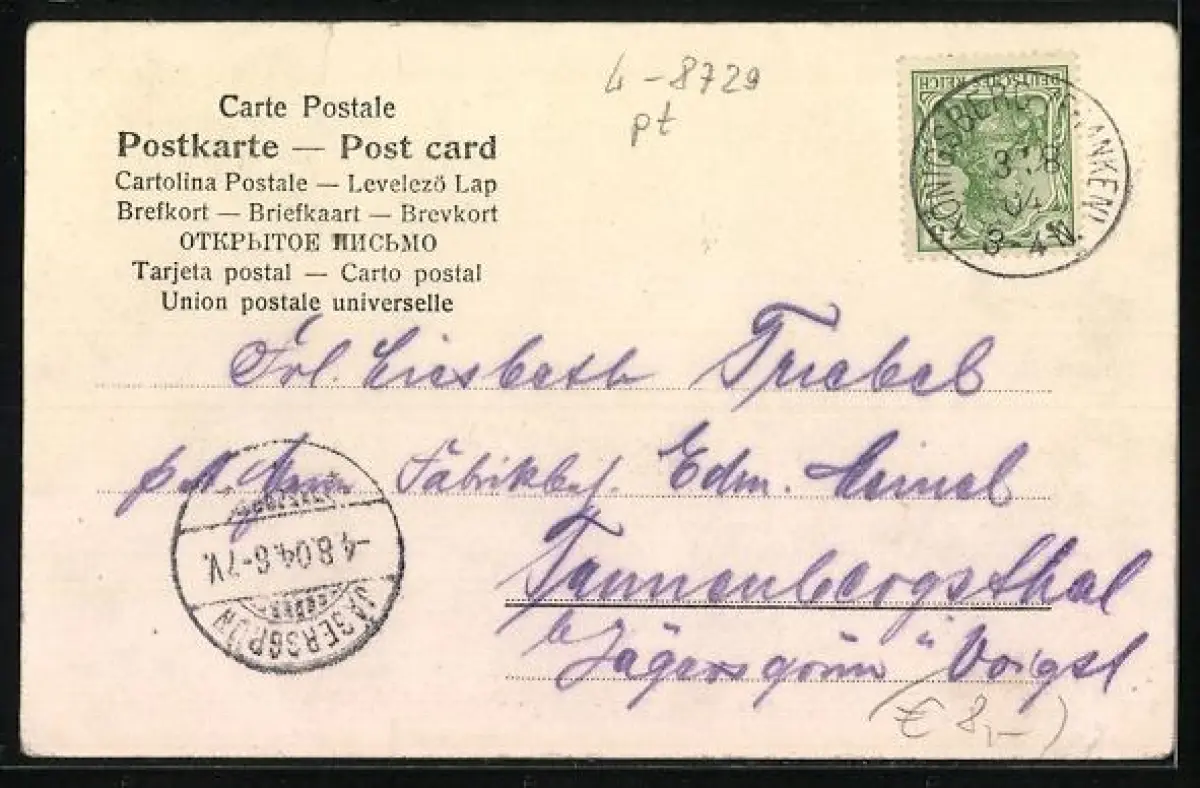 4-8729
pt
Carte Postale
Postkarte — Post card
Cartolina Postale — Levelező Lap
Brefkort — Briefkaart — Brevkort
ОТКРЫТОЕ ПИСЬМО
Tarjeta postal — Carto postal
Union postale universelle
DEUTSCHES REICH
KÖNIGSBERG (FRANKEN)
3.8
04
3-4N.
Frl. Liesbeth Triebel
p. A. Fabrikbes. Edm. Meinel
Tannenbergsthal
b/ Jägersgrün i/ Voigtl.
JÄGERSGRÜN
-4.8.04.6-7V.
(€ 8,-)